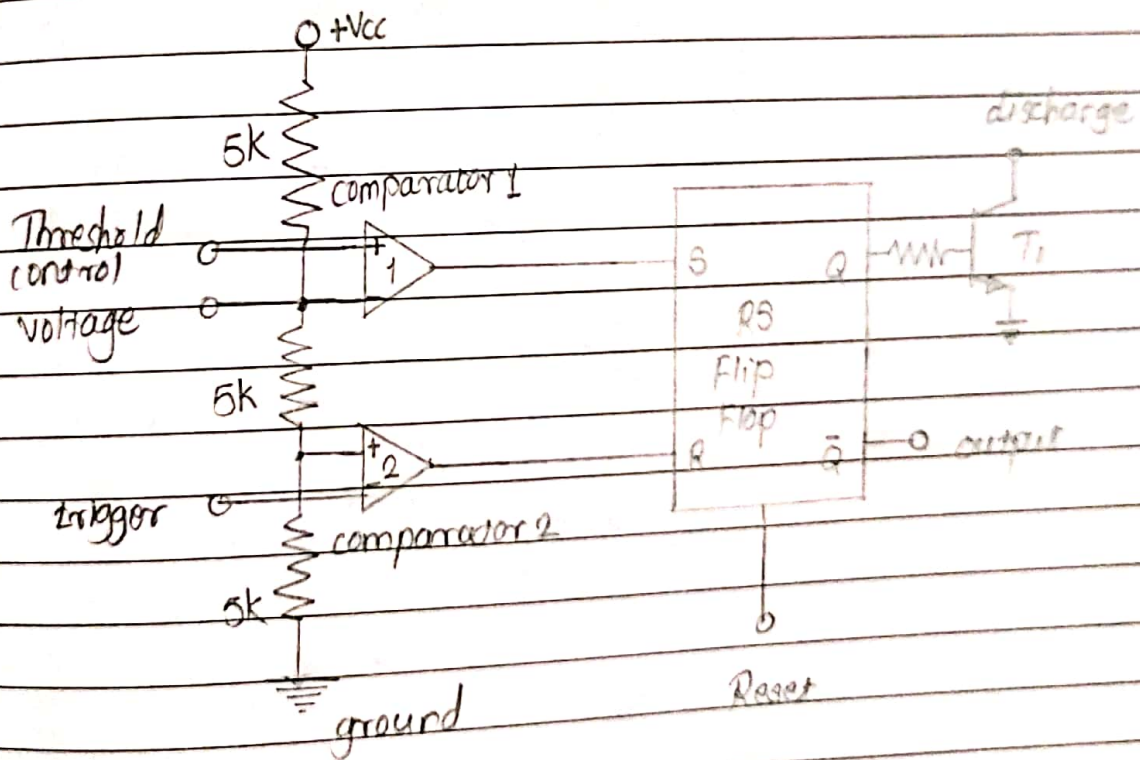 +Vcc
discharge
5K
comparator 1
Threshold
control
voltage
+
1
-
S
Q
T1
RS
Flip
Flop
5K
+
2
-
R
Q̄
output
trigger
comparator 2
5K
Reset
ground